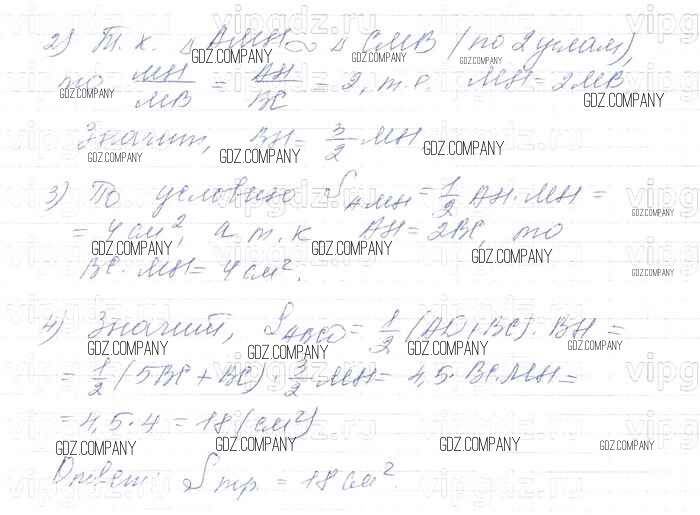 2) Т. к. △ AMH ~ △ CMB (по 2 углам),
то MH/MB = AH/BC = 2, т. е. MH = 2MB
Значит, BH = 3/2 MH
3) По условию S_AMH = 1/2 AH · MH =
= 4 см², а т. к. AH = 2BC, то
BC · MH = 4 см².
4) Значит, S_ABCD = 1/2 (AD + BC) · BH =
= 1/2 (5BC + BC) · 3/2 MH = 4,5 · BC · MH =
= 4,5 · 4 = 18 (см²)
Ответ: S тр. = 18 см².